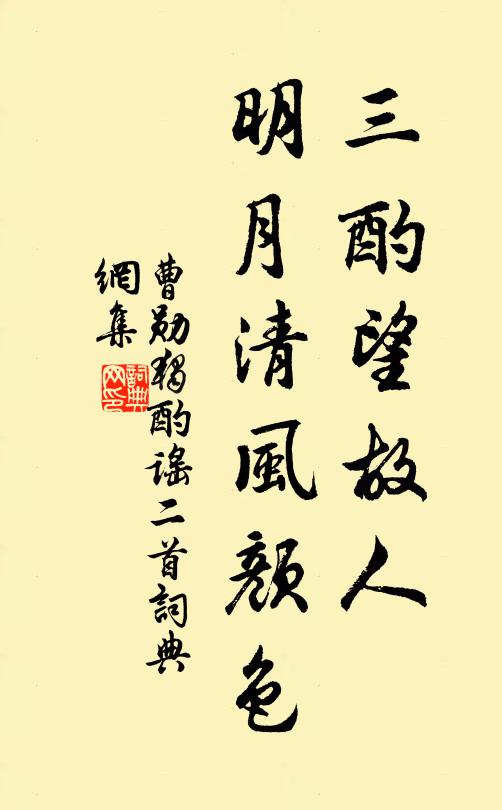 三酌望故人
明月清風顏色
曹勛獨酌謠二首詞典
網集
詞典
网印